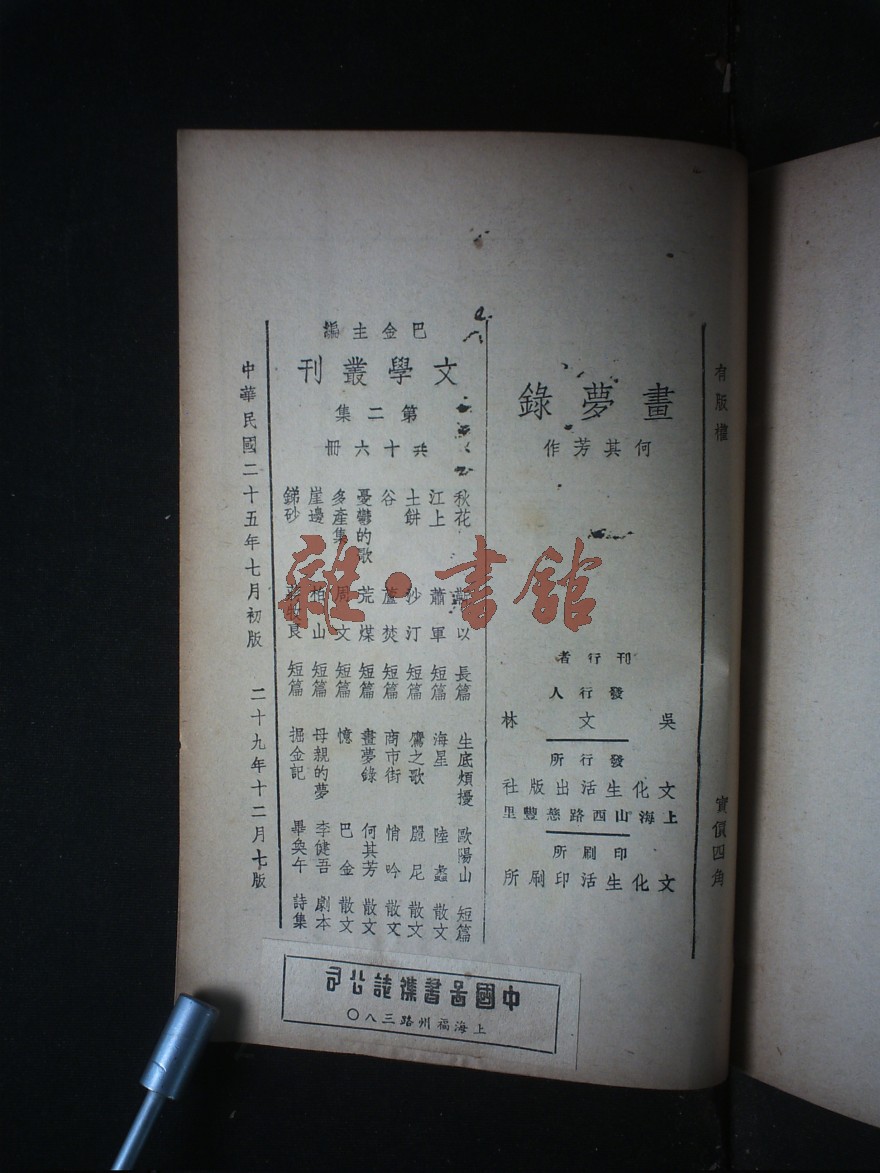 有版權 實價四角
畫夢錄
何其芳作
刊行者
發行人
吳文林
發行所
文化生活出版社
上海山西路慈豐里
印刷所
文化生活印刷所
巴金主編
文學叢刊
第二集
共十六冊
秋花 以 長篇
江上 蕭軍 短篇
土餅 沙汀 短篇
谷 蘆焚 短篇
憂鬱的歌 荒煤 短篇
多產集 周文 短篇
崖邊 柏山 短篇
銻砂 蔣牧良 短篇
生底煩擾 歐陽山 短篇
海星 陸蠡 散文
鷹之歌 麗尼 散文
商市街 悄吟 散文
畫夢錄 何其芳 散文
憶 巴金 散文
母親的夢 李健吾 劇本
掘金記 畢奐午 詩集
中華民國二十五年七月初版 二十九年十二月七版
中國圖書雜誌公司
上海福州路三八〇
雜·書館